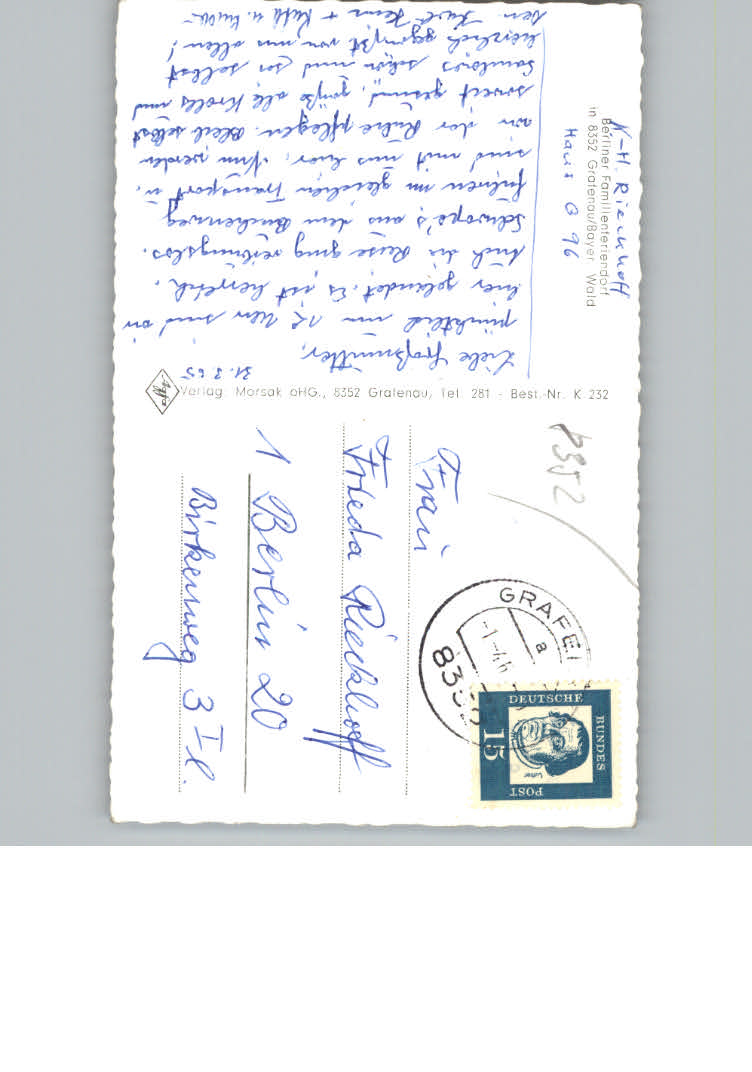 31.3.65
Liebe Großmutter,
pünktlich um 12 Uhr sind wir
hier gelandet. Es ist herrlich.
Auch die Reise ging reibungslos.
aus dem Birkenweg
fuhren im gleichen Transport u.
sind mit uns hier. Nun werden
wir der Ruhe pflegen. Bleib selbst
soweit gesund, grüße alle Krolls und
schön und sei selbst
herzlich gegrüßt von uns allen!
Dein Karl Heinz +
K-H. Rieckhoff
Berliner Familienferiendorf
in 8352 Grafenau/Bayer Wald
Haus G 96
Agfa
Verlag: Morsak oHG., 8352 Grafenau, Tel 281 - Best.-Nr. K 232
Frau
Frieda Rieckhoff
1 Berlin 20
Birkenweg 3 I l.
GRAFE
a
835
DEUTSCHE
BUNDES
POST
15
Luther